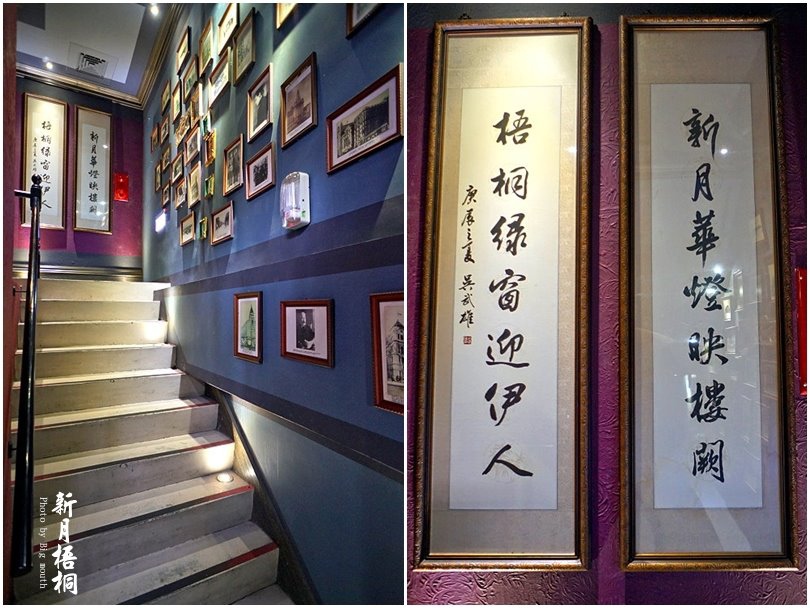 新月華燈映樓闕
梧桐绿窗迎伊人
庚辰之夏 吴武雄
新月華燈映樓闕
梧桐绿窗迎伊人
新月梧桐
Photo by Big mouth